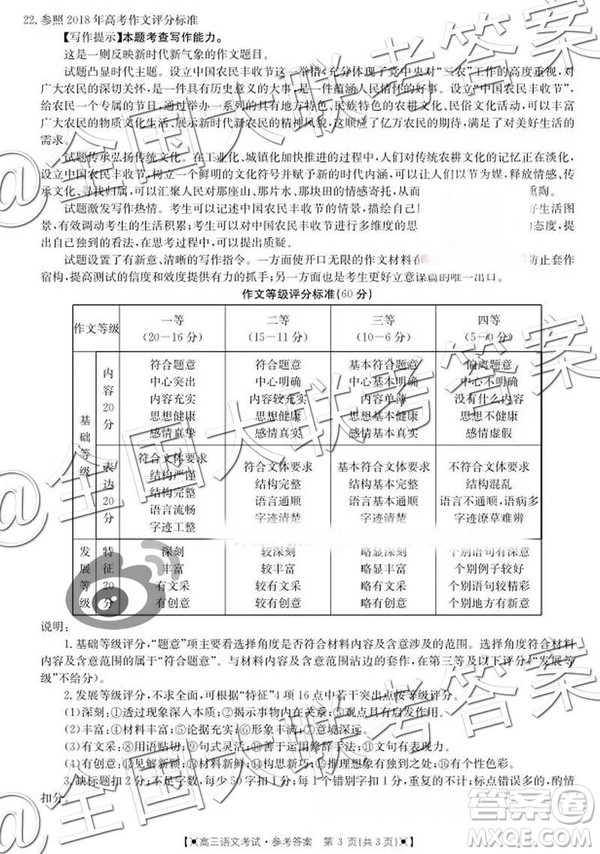 22. 参照 2018 年高考作文评分标准
【写作提示】本题考查写作能力。
这是一则反映新时代新气象的作文题目。
试题凸显时代主题。设立中国农民丰收节这一举措,充分体现了党中央对“三农”工作的高度重视,对
广大农民的深切关怀,是一件具有历史意义的大事,是一件蕴涵人民情怀的好事。设立中国农民丰收节,
给农民一个专属的节日,通过举办一系列的具有地方特色、民俗特色的农耕文化、民俗文化活动,可以丰富
广大农民的物质文化生活、展示新时代新农民的精神风貌,这顺应了亿万农民的期待,满足了对美好生活的
需求。
试题传承弘扬传统文化。在工业化、城镇化加快推进的过程中,人们对传统农耕文化的记忆正在淡化。
设立中国农民丰收节,树立了一个鲜明的文化符号并赋予新的时代内涵,可以让人们以节为媒,释放情感、
传承文化、寻找归属,可以汇聚人民对那座山、那片水、那块田的情感寄托,从而
熏陶。
试题激发写作热情。考生可以记述中国农民丰收节的情景,描绘自己
好生活图
景,有效调动考生的生活积累;考生可以谈设立中国农民丰收节的意义,
出自己独到的看法,在思考过程中,可以提出质疑。
试题设置了有新意、清晰的写作指令。一方面使开口无限的作文材料在
防止套作
宿构,提高测试的信度和效度提供有力的抓手;另一方面,也是考生更好立意谋篇的唯一出口。
作文等级评分标准(60 分)
作文等级
一等
(20—16 分)
二等
(15—11 分)
三等
(10—6 分)
四等
(5—0 分)
基础等级
内容20分
符合题意
中心突出
内容充实
思想健康
感情真挚
符合题意
中心明确
内容充实
思想健康
感情真实
基本符合题意
中心基本明确
内容单薄
思想基本健康
感情基本真实
偏离题意
中心不明确
没有什么内容
思想不健康
感情虚假
表达20分
符合文体要求
结构严谨
语言流畅
字迹工整
符合文体要求
结构完整
语言通顺
字迹清楚
基本符合文体要求
结构基本完整
语言基本通顺
字迹基本清楚
不符合文体要求
结构混乱
语言不通顺,语病多
字迹潦草难辨
发展等级
特征20分
深刻
丰富
有文采
有创意
较深刻
较丰富
较有文采
较有创意
略显深刻
略显丰富
略有文采
略有创意
个别语句有深意
个别例子较好
个别语句较精彩
个别地方有新意
说明:
1. 基础等级评分,“题意”项主要看选择角度是否符合材料内容及含意涉及的范围。选择角度符合材料
内容及含意范围的属于“符合题意”。与材料内容及含意范围不沾边的套作,在第三等及以下评分(“发展等
级”不给分)。
2. 发展等级评分,不求全面,可根据“特征”4 项 16 点中若干突出点按等级评分。
(1)深刻:①透过现象深入本质;②揭示事物内在的因果关系;③观点具有启发作用。
(2)丰富:④材料丰富;⑤论据充实;⑥形象丰满;⑦意境深远。
(3)有文采:⑧用语贴切;⑨句式灵活;⑩善于运用修辞手法;⑪文句有表现力。
3. 缺标题扣 2 分;不足字数,每少 50 字扣 1 分;每 1 个错别字扣 1 分,重复不计;标点错误多,酌情
扣分。
高三语文考试·参考答案 第 3 页(共 3 页)
@全国大联考答案
@全国大联考答案
答案圈
MXQE.COM